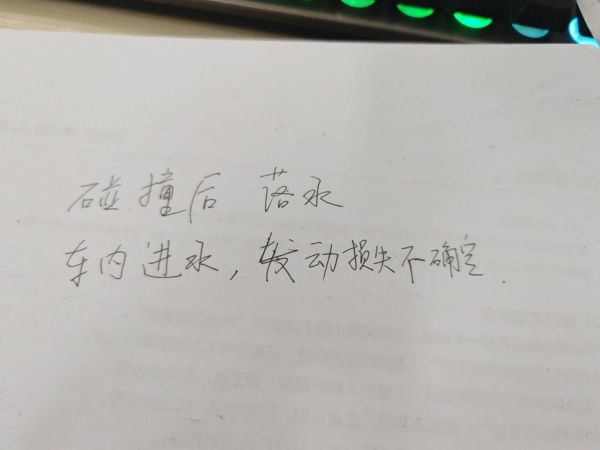 碰撞后 落水
车内进水,发动损失不确定.